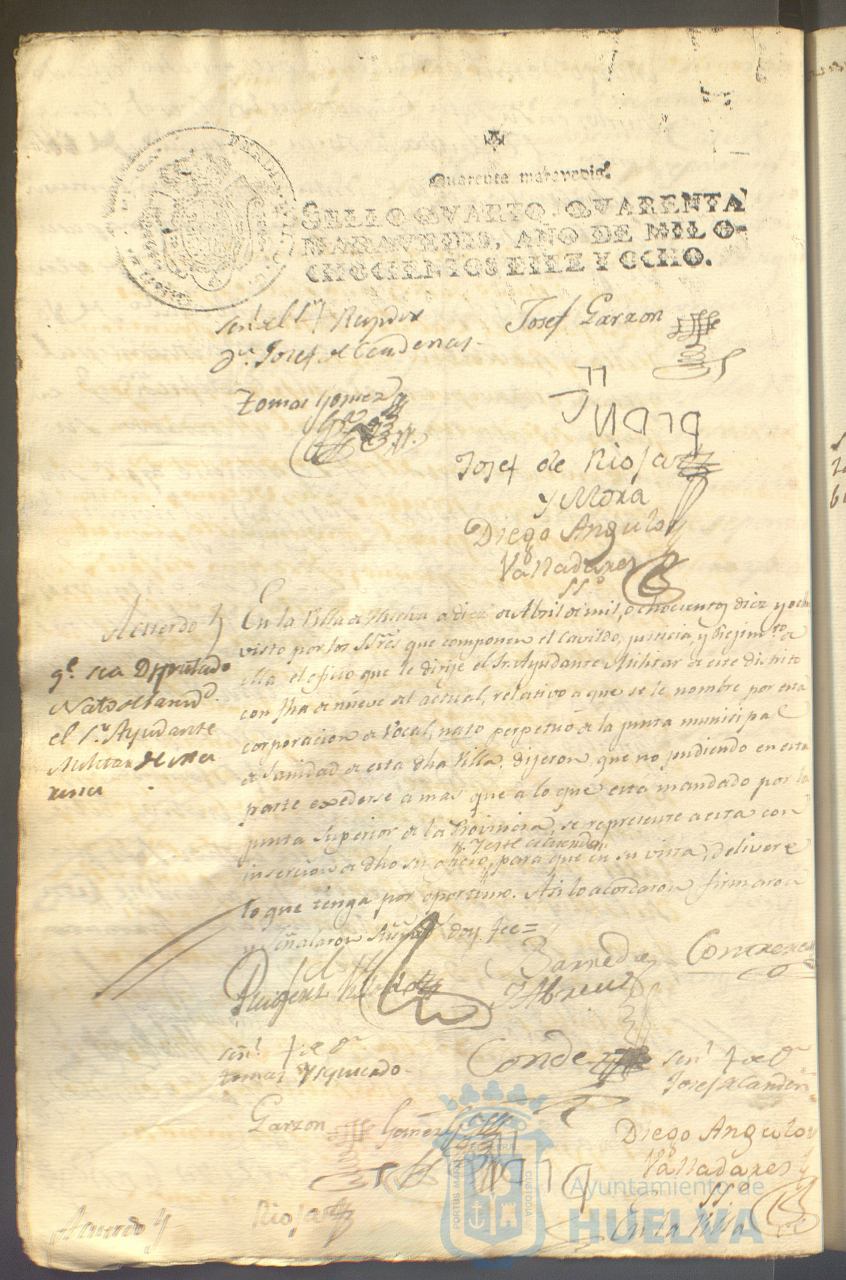 Quarenta maravedis.
SELLO QVARTO, QVARENTA
MARAVEDIS, AÑO DE MIL O-
CHOCIENTOS DIEZ Y OCHO.
Josef Garzon
Dn. Josef de Cardenas
Tomas Gomez
Josef de Rioja
y Mora
Diego Angulo y
Valladares
SSº
Acuerdo
En la Villa de Huelva a diez de Abril de mil, ochocientos diez y ocho
visto por los SSres que componen el Cavildo, justicia, y Regimto. de
ella el oficio que le dirije el Sr. Ayudante Militar de este distrito
con fha de nueve del actual, relativo a que se le nombre por esta
corporacion de Vocal, nato perpetuo de la junta municipal
de Sanidad de esta dha Villa; dijeron, que no pudiendo en esta
parte excederse a mas que a lo que esta mandado por la
junta Superior de la Provincia, se represente a esta con
insercion de dho oficio, para que en su vista, delivere
lo que tenga por oportuno. Asi lo acordaron firmaron
y señalaron doy fee=
qe. sea Diputado
Nato de Sanidd.
el Sr. Ayudante
Militar de Ma
rina
Barreda
Contrera
Abreu
Conde
Tomas Ysquierdo
Garzon
Gomez
Diego Angulo y
Valladares
SSº
Rioja
Acuerdo
En la Villa
PORTUS MARIS
Ayuntamiento de
HUELVA